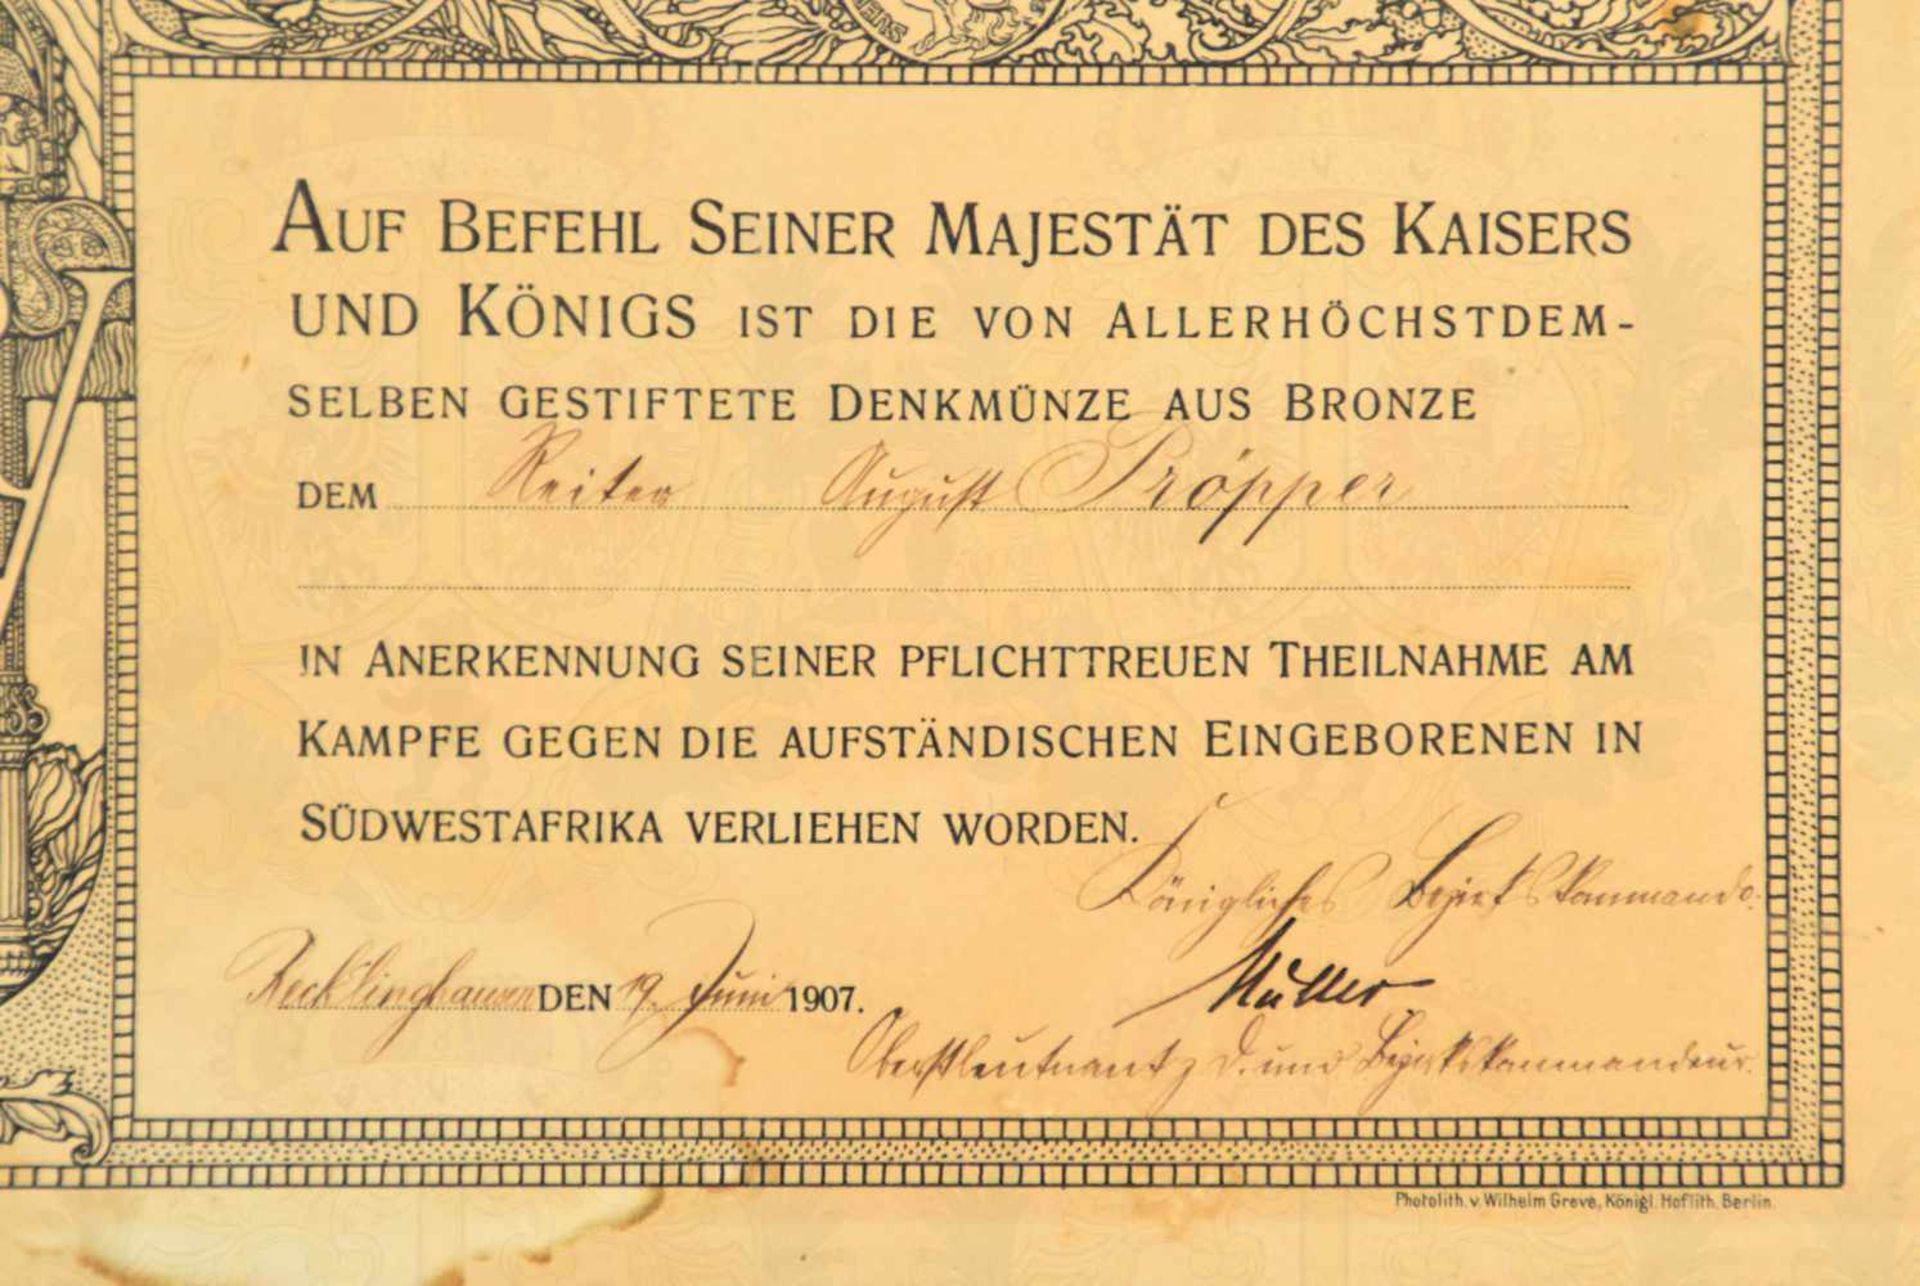 AUF BEFEHL SEINER MAJESTÄT DES KAISERS
UND KÖNIGS IST DIE VON ALLERHÖCHSTDEM-
SELBEN GESTIFTETE DENKMÜNZE AUS BRONZE
DEM Reiter August Pröpper
IN ANERKENNUNG SEINER PFLICHTTREUEN THEILNAHME AM
KAMPFE GEGEN DIE AUFSTÄNDISCHEN EINGEBORENEN IN
SÜDWESTAFRIKA VERLIEHEN WORDEN.
Königliches Bezirkskommando.
Recklinghausen DEN 19. Juni 1907.
Müller
Oberstleutnant z. D. und Bezirkskommandeur.
Photolith. v. Wilhelm Greve, Königl. Hoflith. Berlin.